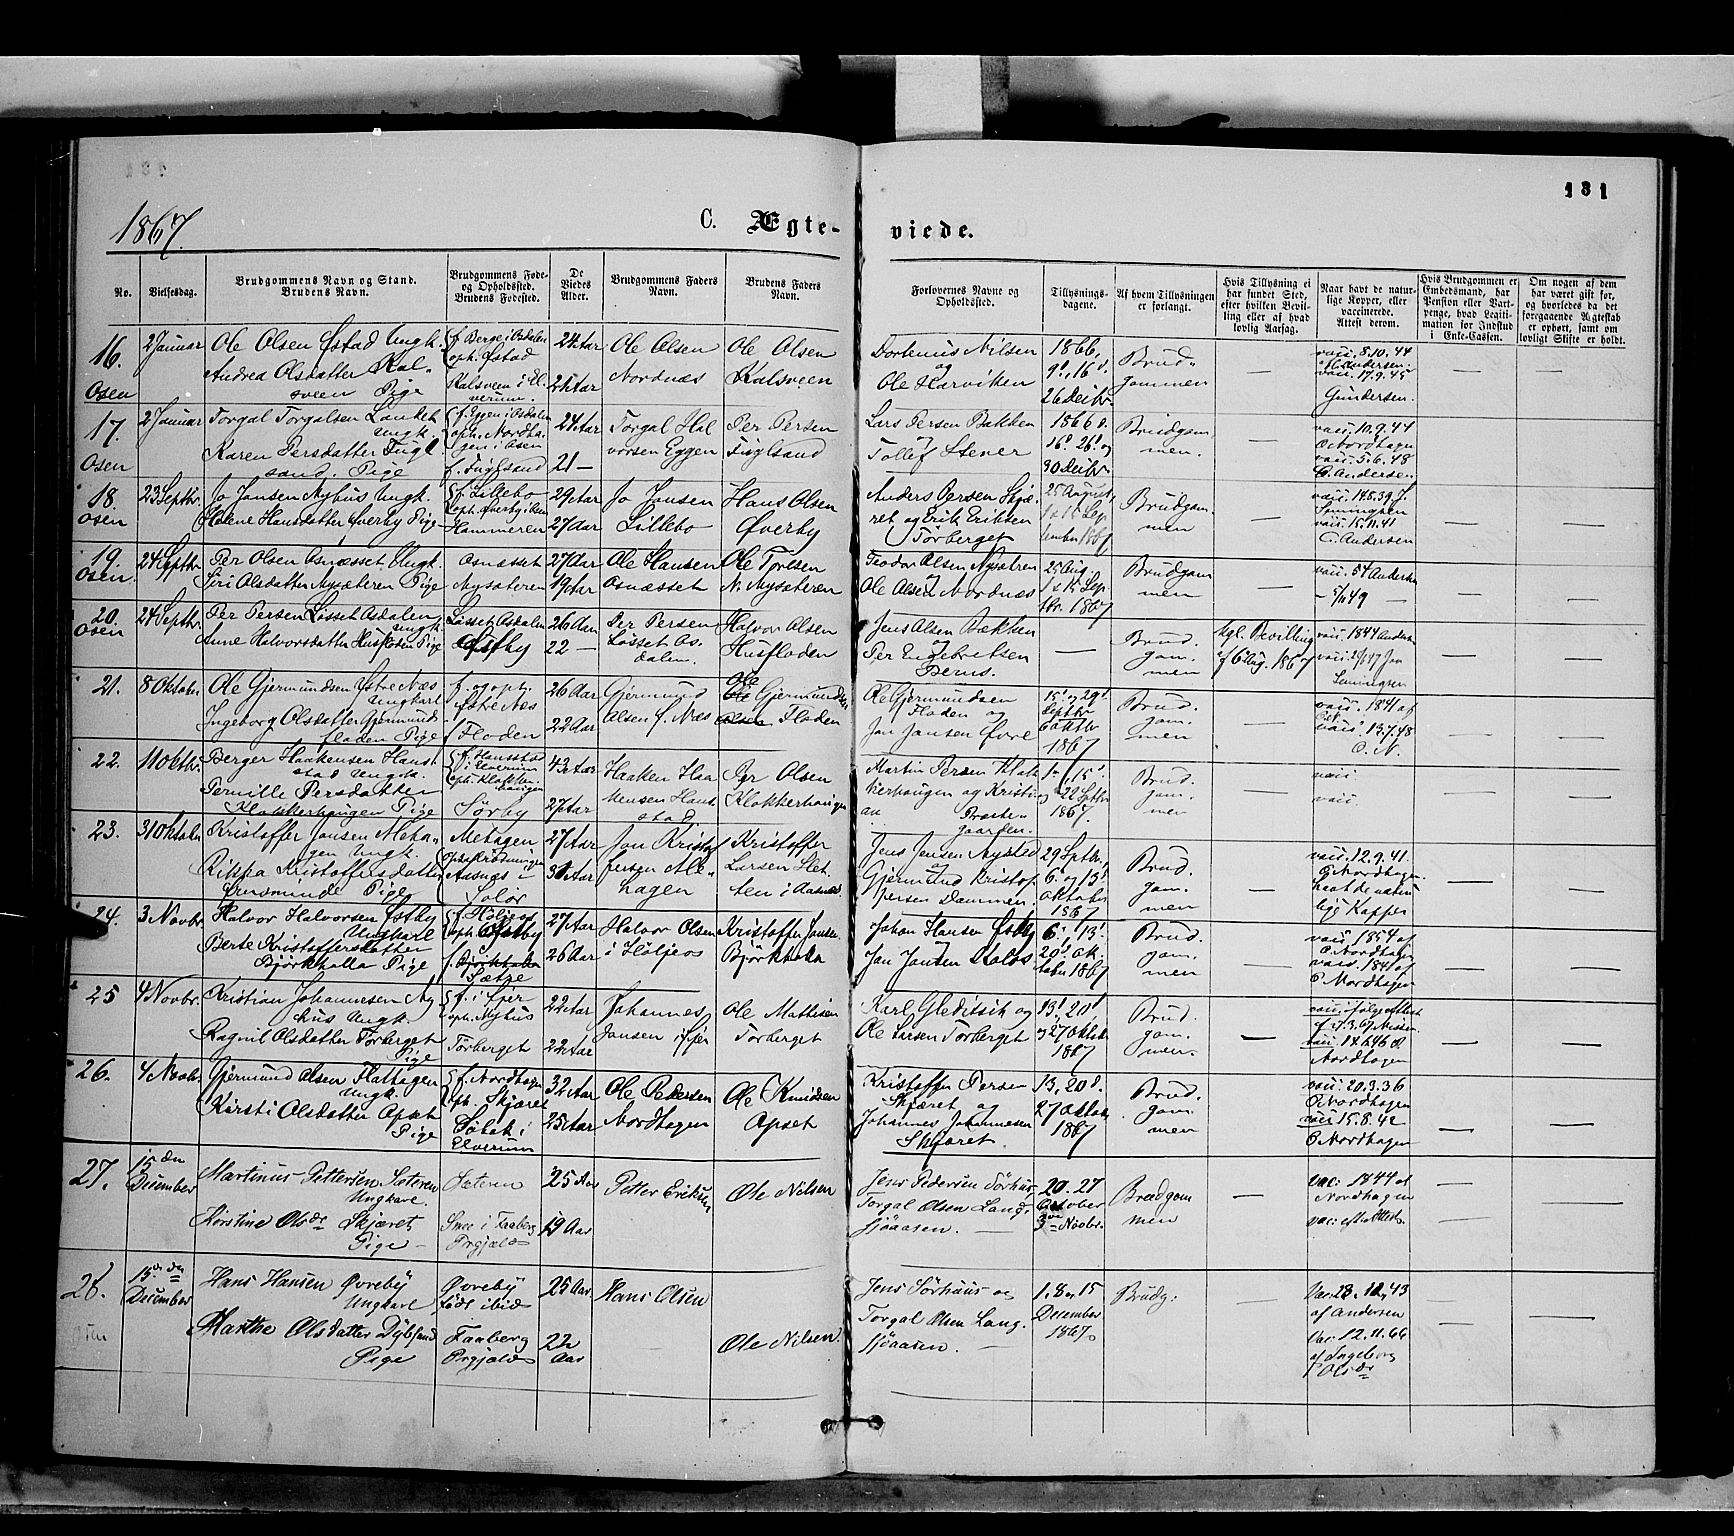 131
1867.
C. Ægte- viede.
No.
Vielsesdag.
Brudgommens Navn og Stand.
Brudens Navn.
Brudgommens Føde- og Opholdssted.
Brudens Fødested.
De Viedes Alder.
Brudgommens Faders Navn.
Brudens Faders Navn.
Forlovernes Navne og Opholdssted.
Tillysnings-dagene.
Af hvem Tillysningen er forlangt.
Hvis Tillysning ei har fundet Sted, efter hvilken Bevilling eller af hvad lovlig Aarsag.
Naar havt de naturlige Kopper, eller vaccinerede. Attest derom.
Hvis Brudgommen er Embedsmand, har Pension eller Vartpenge, hvad Legitimation for Indskud i Enke-Cassen.
Om nogen af dem har været gift før, og hvorledes da det foregaaende Ægteskab er ophørt, samt om lovligt Skifte er holdt.
16. Osen
2 Januar
Ole Olsen Østad Ungk.
Andrea Olsdatter Kalsveen Pige
f. Berge i Osdalen
oph. Østad
Kalsveen i Elverum.
24 Aar
24 Aar
Ole Olsen Nordnæs
Ole Olsen Kalsveen
Nilsen og
Ole Harviken
1866,
9d, 16d.
26 Decbr.
Brudgommen
—
vacc. 8.10.44
Andersen
vacc. 17.9.45
Gundersen.
17. Osen
2 Januar
Torgal Torgalsen
Ungk.
Karen Persdatter Fuglsand. Pige
f. Eggen i Osdalen
oph. Nordhagen i Osen
f. Fuglsand
24 Aar
21 —
Torgal Halvorsen Eggen
Per Persen Fuglsand
Lars Persen Bakken
Tollef Stener
1866
16d. 26d. og
30 Decbr.
Brudgommen.
—
vacc. 11.9.44
Nordhagen
vacc. 5.6.48
Andersen
18. Osen
23 Septbr.
Jo Jonsen Nyhus Ungk.
Helene Hansdatter Øverby Pige
f. Lillebo
oph. Øverby
Hammeren
29 Aar
27 Aar
Jo Jonsen Lillebo
Hans Olsen Øverby
Anders Persen Skjæret og Erik Eriksen
Törberget
25 August,
September 1867
Brudgommen
—
Semingsen
vacc. 15.11.41
Andersen
19. Osen.
24 Septbr.
Per Olsen Osnæsset Ungk.
Siri Olsdatter Nysæteren Pige
Osnæsset
Nysæteren
27 Aar
19 Aar
Ole Hansen Osnæsset
Ole Toresen
N. Nysæteren
Teodor Olsen Nysætren
Ole Olsen Nordnæs
25 Aug.
1 & 15 Sep
tbr. 1867
Brudgommen
—
vacc. 54 Andersen
20. Osen
24 Septbr.
Per Persen Løsset Osdalen
Ungk.
Anne Halvorsdatter Husfloden Pige
Løsset Osdalen
Østby
26 Aar
22 —
Per Persen
Løsset Osdalen.
Halvor Olsen
Husfloden
Jens Olsen Bækken
og
Per Engebretsen
Berus.
—
Brudgommen
kgl. Bevilling
af 6 Aug. 1867
vacc. 1844 Andersen
Semingsen
21.
8 Oktober
Ole Gjermundsen Østre Næs
Ungkarl
Ingeborg Olsdatter Gjermundsfloden Pige
f. og oph.
Østre Næs
f. Floden
26 Aar
22 Aar
Gjermund
Olsen Ø. Næs
Ole Gjermundsen
Floden
Ole Gjermundsen
Floden og
Jon Jonsen Øvre
15d. og 29d.
Septbr.
6 Oktbr.
1867
Brudgommen
—
vacc. 1841 af
vacc. 13.7.48
O. N.
22.
11 Oktbr.
Berger Haakensen Hanstad Ungk.
Pernille Persdatter
Klokkerhaugen Pige
f. Hanstad
i Elverum
oph. Klokkerhaugen
Sörby
43 Aar
27 Aar
Haaken Haakensen Hanstad
Per Olsen
Klokkerhaugen
Martin Persen Klokkerhaugen og Kristian Prestegaarden.
1ste, 15d.
og 22 Septbr.
1867.
Brudgommen
—
vacc.
vacc.
23.
31 Oktober
Kristoffer Jonsen Mehagen Ungk.
Rikka Kristoffersdatter
Grusminde Pige
Mehagen
Aasnæs i
Solør
27 Aar
30 Aar
Jon Kristoffersen Mehagen
Kristoffer
Larsen Sletten i Aasnæs
Jens Jensen Nysted
Gjermund Kristoffersen Dammen.
29 Septbr.
6d. og 13d.
Oktober
1867
Brudgommen
—
vacc. 12.9.41.
O Nordhagen
havt de naturlige Kopper
24.
3 Novbr.
Halvor Halvorsen Østby
Ungkarl
Berte Kristoffersdatter
Björkholla Pige
f. Höljeos
oph. Østby
f. Björkholla
Sætre
27 Aar
26 Aar
Halvor Olsen
i Höljeos
Kristoffer Jonsen
Björkholla
Johan Hansen Østby
Jon Jonsen
6d., 13d.
20d. Oktober 1867
Brudgommen
—
vacc. 1854 af
O. Nordhagen
vacc. 1841 af
O Nordhagen
25
4 Novbr.
Kristian Johannesen Nyhus Ungk.
Ragnil Olsdatter Törberget
Pige
oph. Nyhus
Törberget
22 Aar
22 Aar
Johannes
Jonsen
Ole Mathisen
Törberget
Karl Gleditsch og
Ole Larsen Törberget
13d. 20d.
og 27 Oktober
1867
Brudgommen.
—
vacc. ifølge attest
Nordhagen
26.
4 Novbr.
Gjermund Olsen Flathagen
Ungk.
Kirsti Olsdatter Opset
Pige
f. Nordhagen
oph. Skjæret
i
Elverum
32 Aar
25 Aar
Ole Pedersen
Nordhagen
Ole Knudsen
Opset
Kristoffer Persen
Skjæret og
Johannes Johannesen
Skjæret.
13, 20d.
27 Oktober
1867
Brudgommen
vacc. 20.3.36
O Nordhagen
vacc. 15.8.42
O Nordhagen
27.
15den December
Martinus Pettersen Sæteren
Ungkarl
Kirstine Olsdr Skjæret,
Pige —
Sæteren
Smee i Faaberg
Prgjæld
25 Aar
19 Aar
Petter Eriksen
Ole Nilsen
Jens Pedersen Sörhuus
Torgal Olsen Langsjöaasen. —
20. 27
October
3die Novbr.
Brudgommen
—
vac: 1844 af
Nordhagen
vac: eft. Attest
28.
15de December
Hans Hansen Øvreby
Ungkarl
Marthe Olsdatter Dybsand
Pige
Øvreby
född ibid
Faaberg
Prgjæld
25 Aar
22 Aar
Hans Olsen
—
Ole Nilsen
Jens Sörhuus og
Torgal Olsen Langsjöaasen. —
1. 8 og 15
December
1867
Brudg:
—
af Andersen
Vac: 12.11.66
af Ingeborg
Olsdr